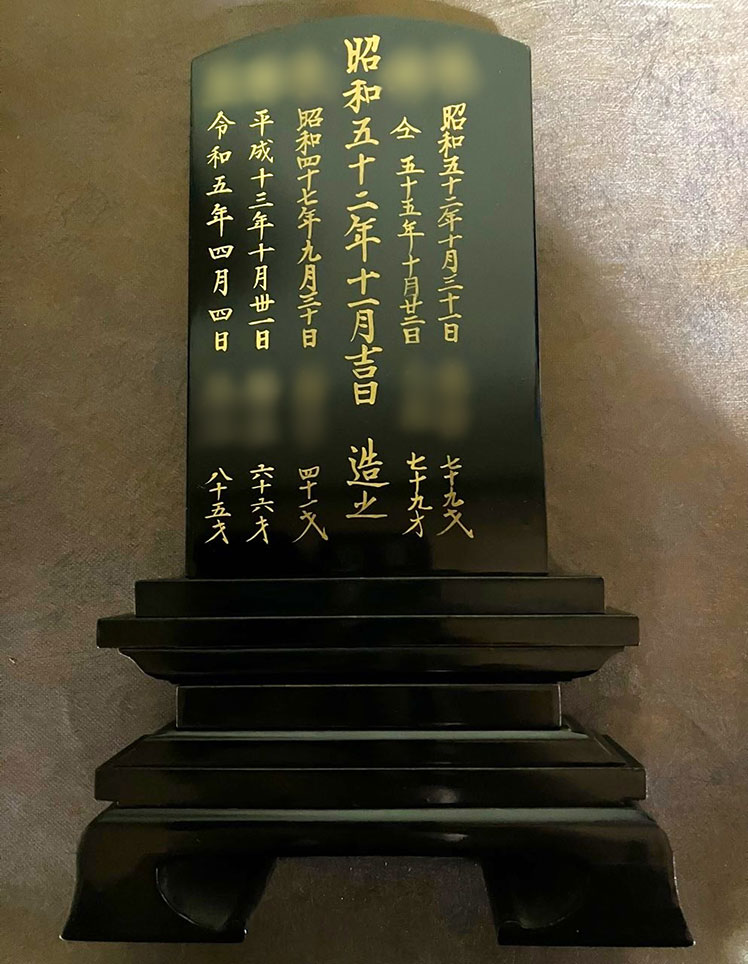 昭和五十二年十月三十一日
七十九才
仝 五十五年十月廿二日
七十九才
昭和五十二年十一月吉日 造之
昭和四十七年九月三十日
四十一才
平成十三年十月廿一日
六十六才
令和五年四月四日
八十五才